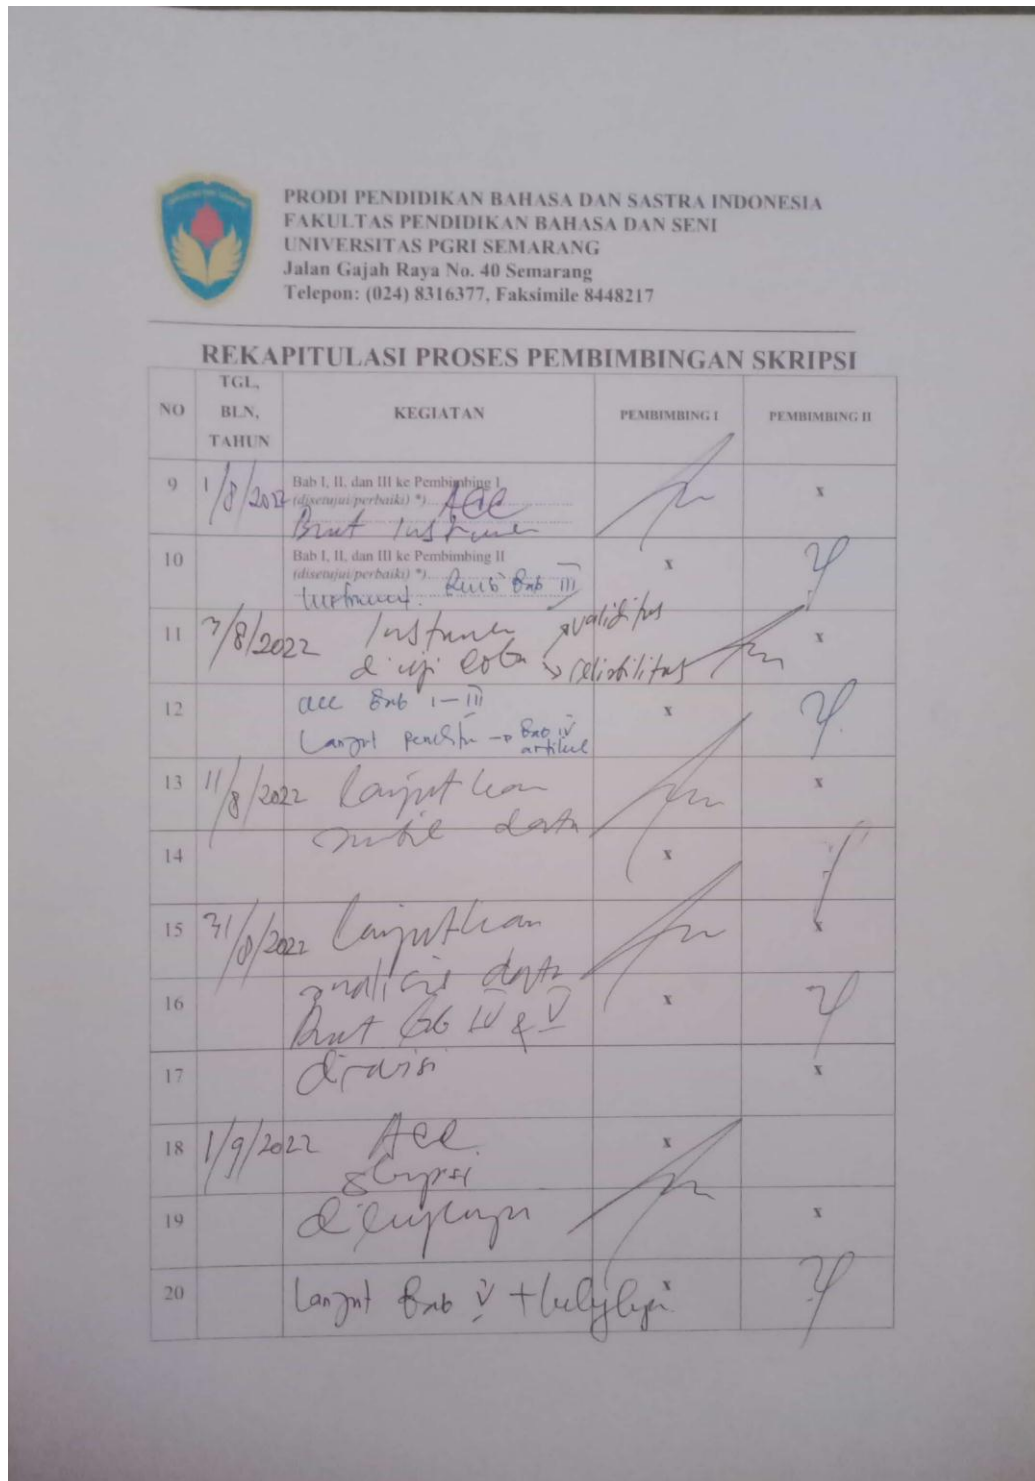 PRODI PENDIDIKAN BAHASA DAN SASTRA INDONESIA
FAKULTAS PENDIDIKAN BAHASA DAN SENI
UNIVERSITAS PGRI SEMARANG
Jalan Gajah Raya No. 40 Semarang
Telepon: (024) 8316377, Faksimile 8448217
REKAPITULASI PROSES PEMBIMBINGAN SKRIPSI
NO TGL, BLN, TAHUN KEGIATAN PEMBIMBING I PEMBIMBING II
9 1/8/2022 Bab I, II, dan III ke Pembimbing I x
(disetujui/perbaiki) *) ACC
Buat Instrumen
10 Bab I, II, dan III ke Pembimbing II x
(disetujui/perbaiki) *) Revisi Bab III
Instrument.
11 3/8/2022 Instrumen validitas x
diuji coba reliabilitas
12 acc Bab I-III x
Lanjut → Bab IV
artikel
13 11/8/2022 lanjutkan x
data
14 x
15 31/8/2022 lanjutkan x
analisis data
16 Buat Bab IV & V x
17 direvisi x
18 1/9/2022 Acc x
skripsi
19 dilengkapi x
20 Lanjut Bab V + x